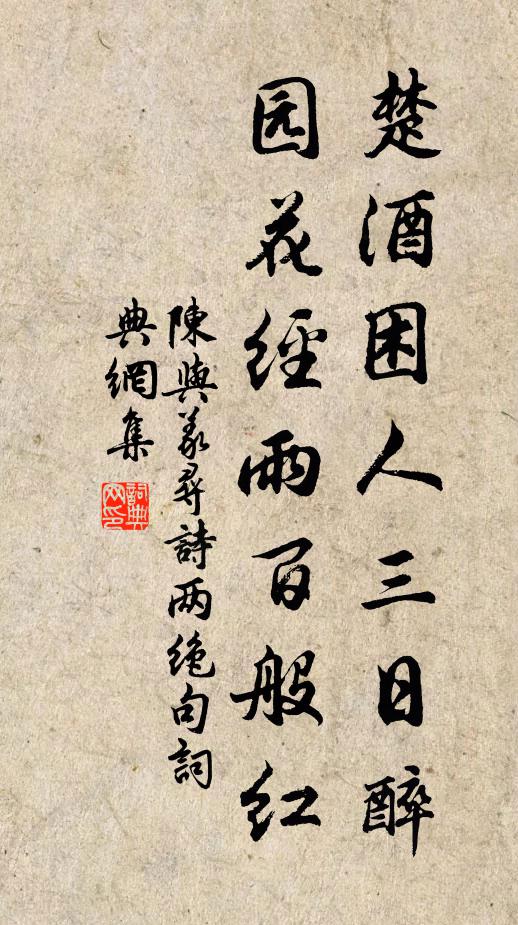 楚酒困人三日醉
园花经雨百般红
陳與义尋詩两绝句詞
典網集
詞典网印